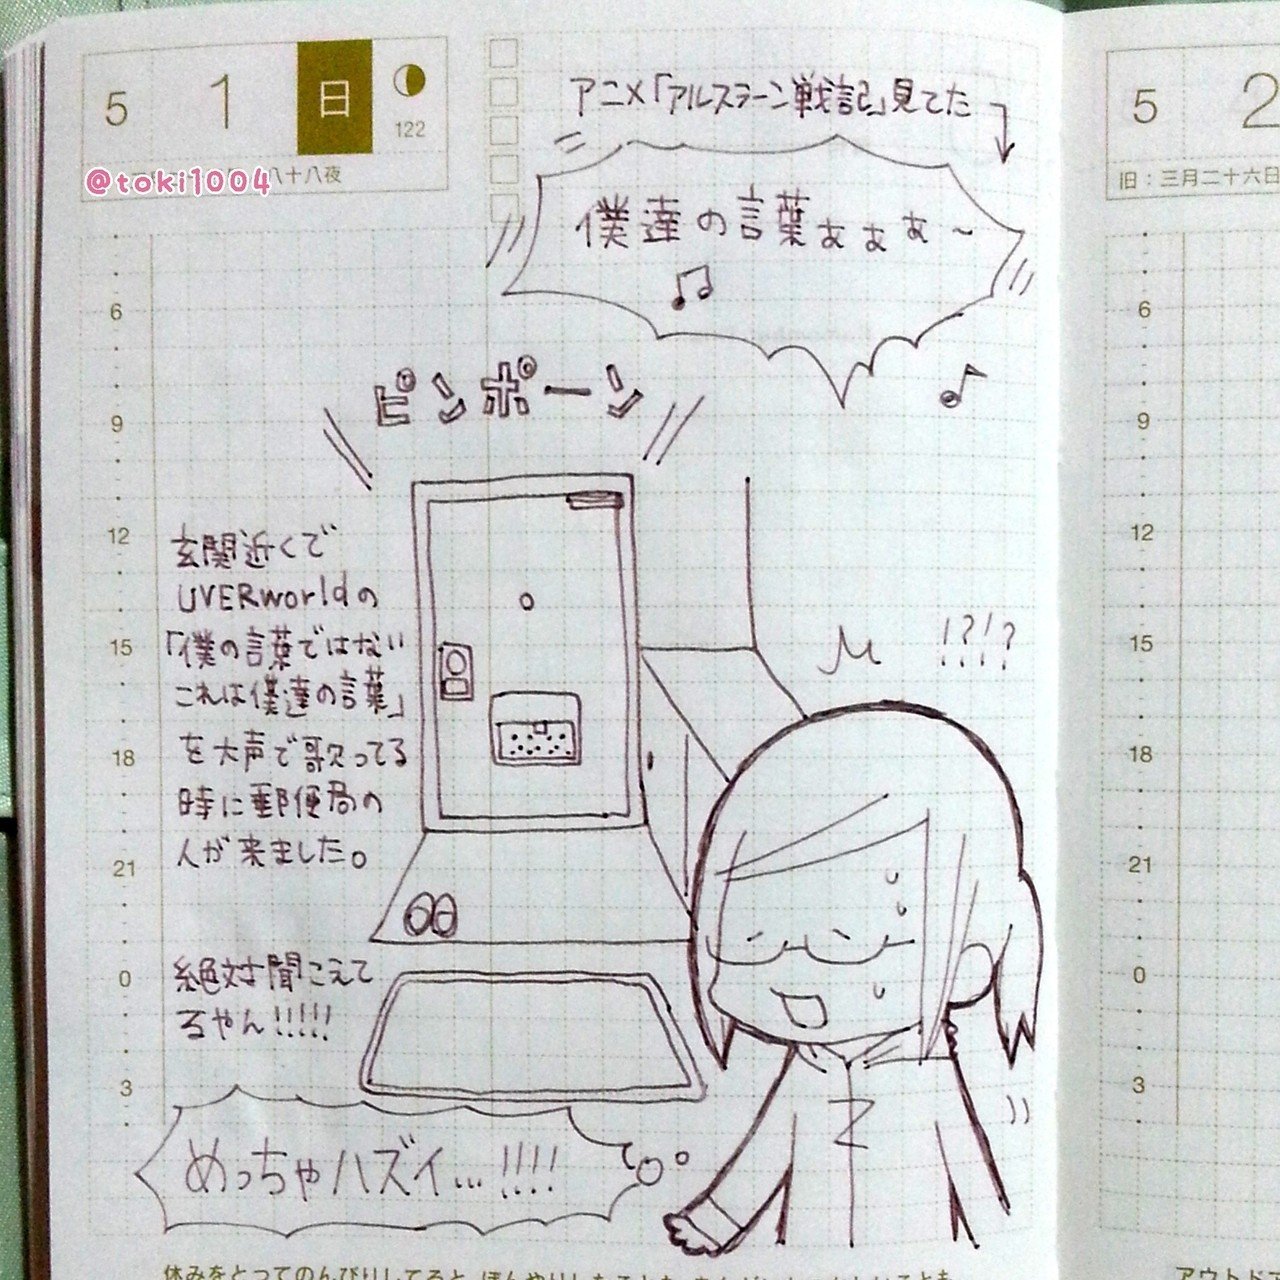 5 1 日
122
@toki1004
八十八夜
アニメ「アルスラーン戦記」見てた
僕達の言葉ぁぁぁ~
ピンポーン
玄関近くで
UVERworldの
「僕の言葉ではない
これは僕達の言葉」
を大声で歌ってる
時に郵便局の
人が来ました。
!?!?
絶対聞こえて
るやん!!!!!
めっちゃハズイ…!!!!
6
9
12
15
18
21
0
3
休みをとってのんびりしてると、ぼんやりした
5 2
旧:三月二十六日
6
9
12
15
18
21
0
3
アウトド